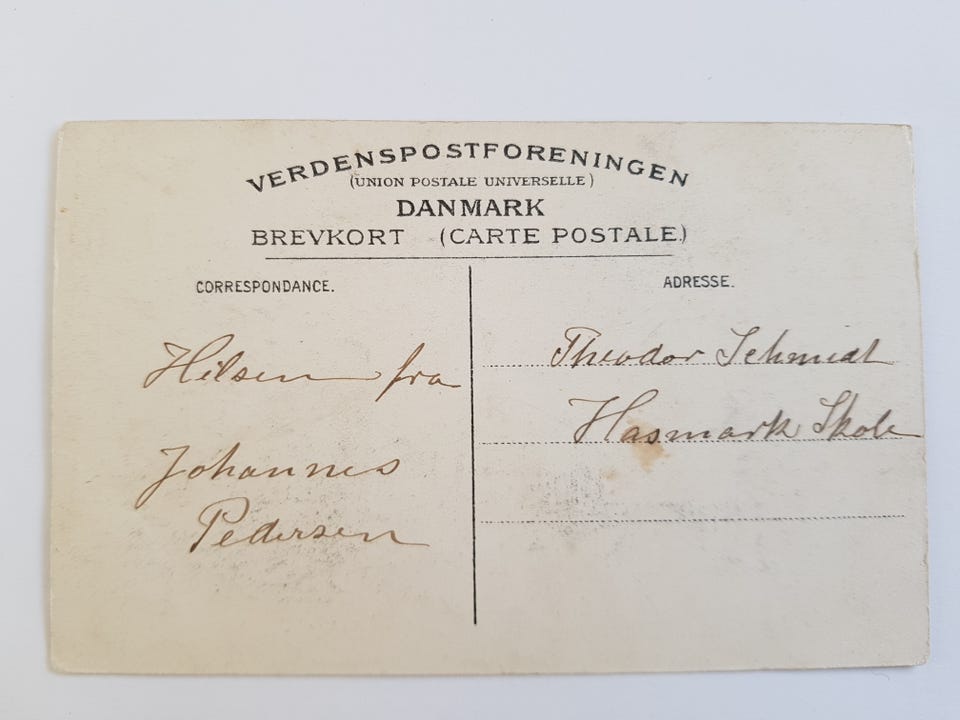 VERDENSPOSTFORENINGEN
(UNION POSTALE UNIVERSELLE)
DANMARK
BREVKORT (CARTE POSTALE.)
CORRESPONDANCE.
Hilsen fra
Johannes
Pedersen
ADRESSE.
Theodor Schmidt
Hasmark Skole